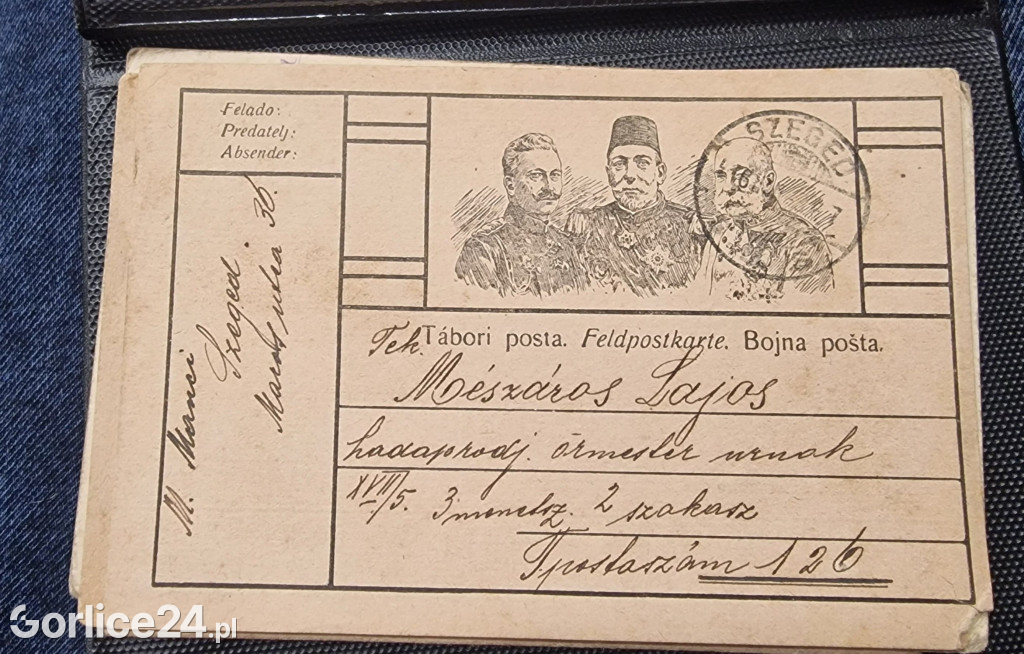 Felado:
Predatelj:
Absender:
M. Manci
Szeged
Maros utca 30.
SZEGED
Tábori posta. Feldpostkarte. Bojna pošta.
Tek.
Mészáros Lajos
hadaprodj. őrmester urnak
XVII/5. 3 menetsz. 2 szakasz
Tpostaszám 126
Gorlice24.pl